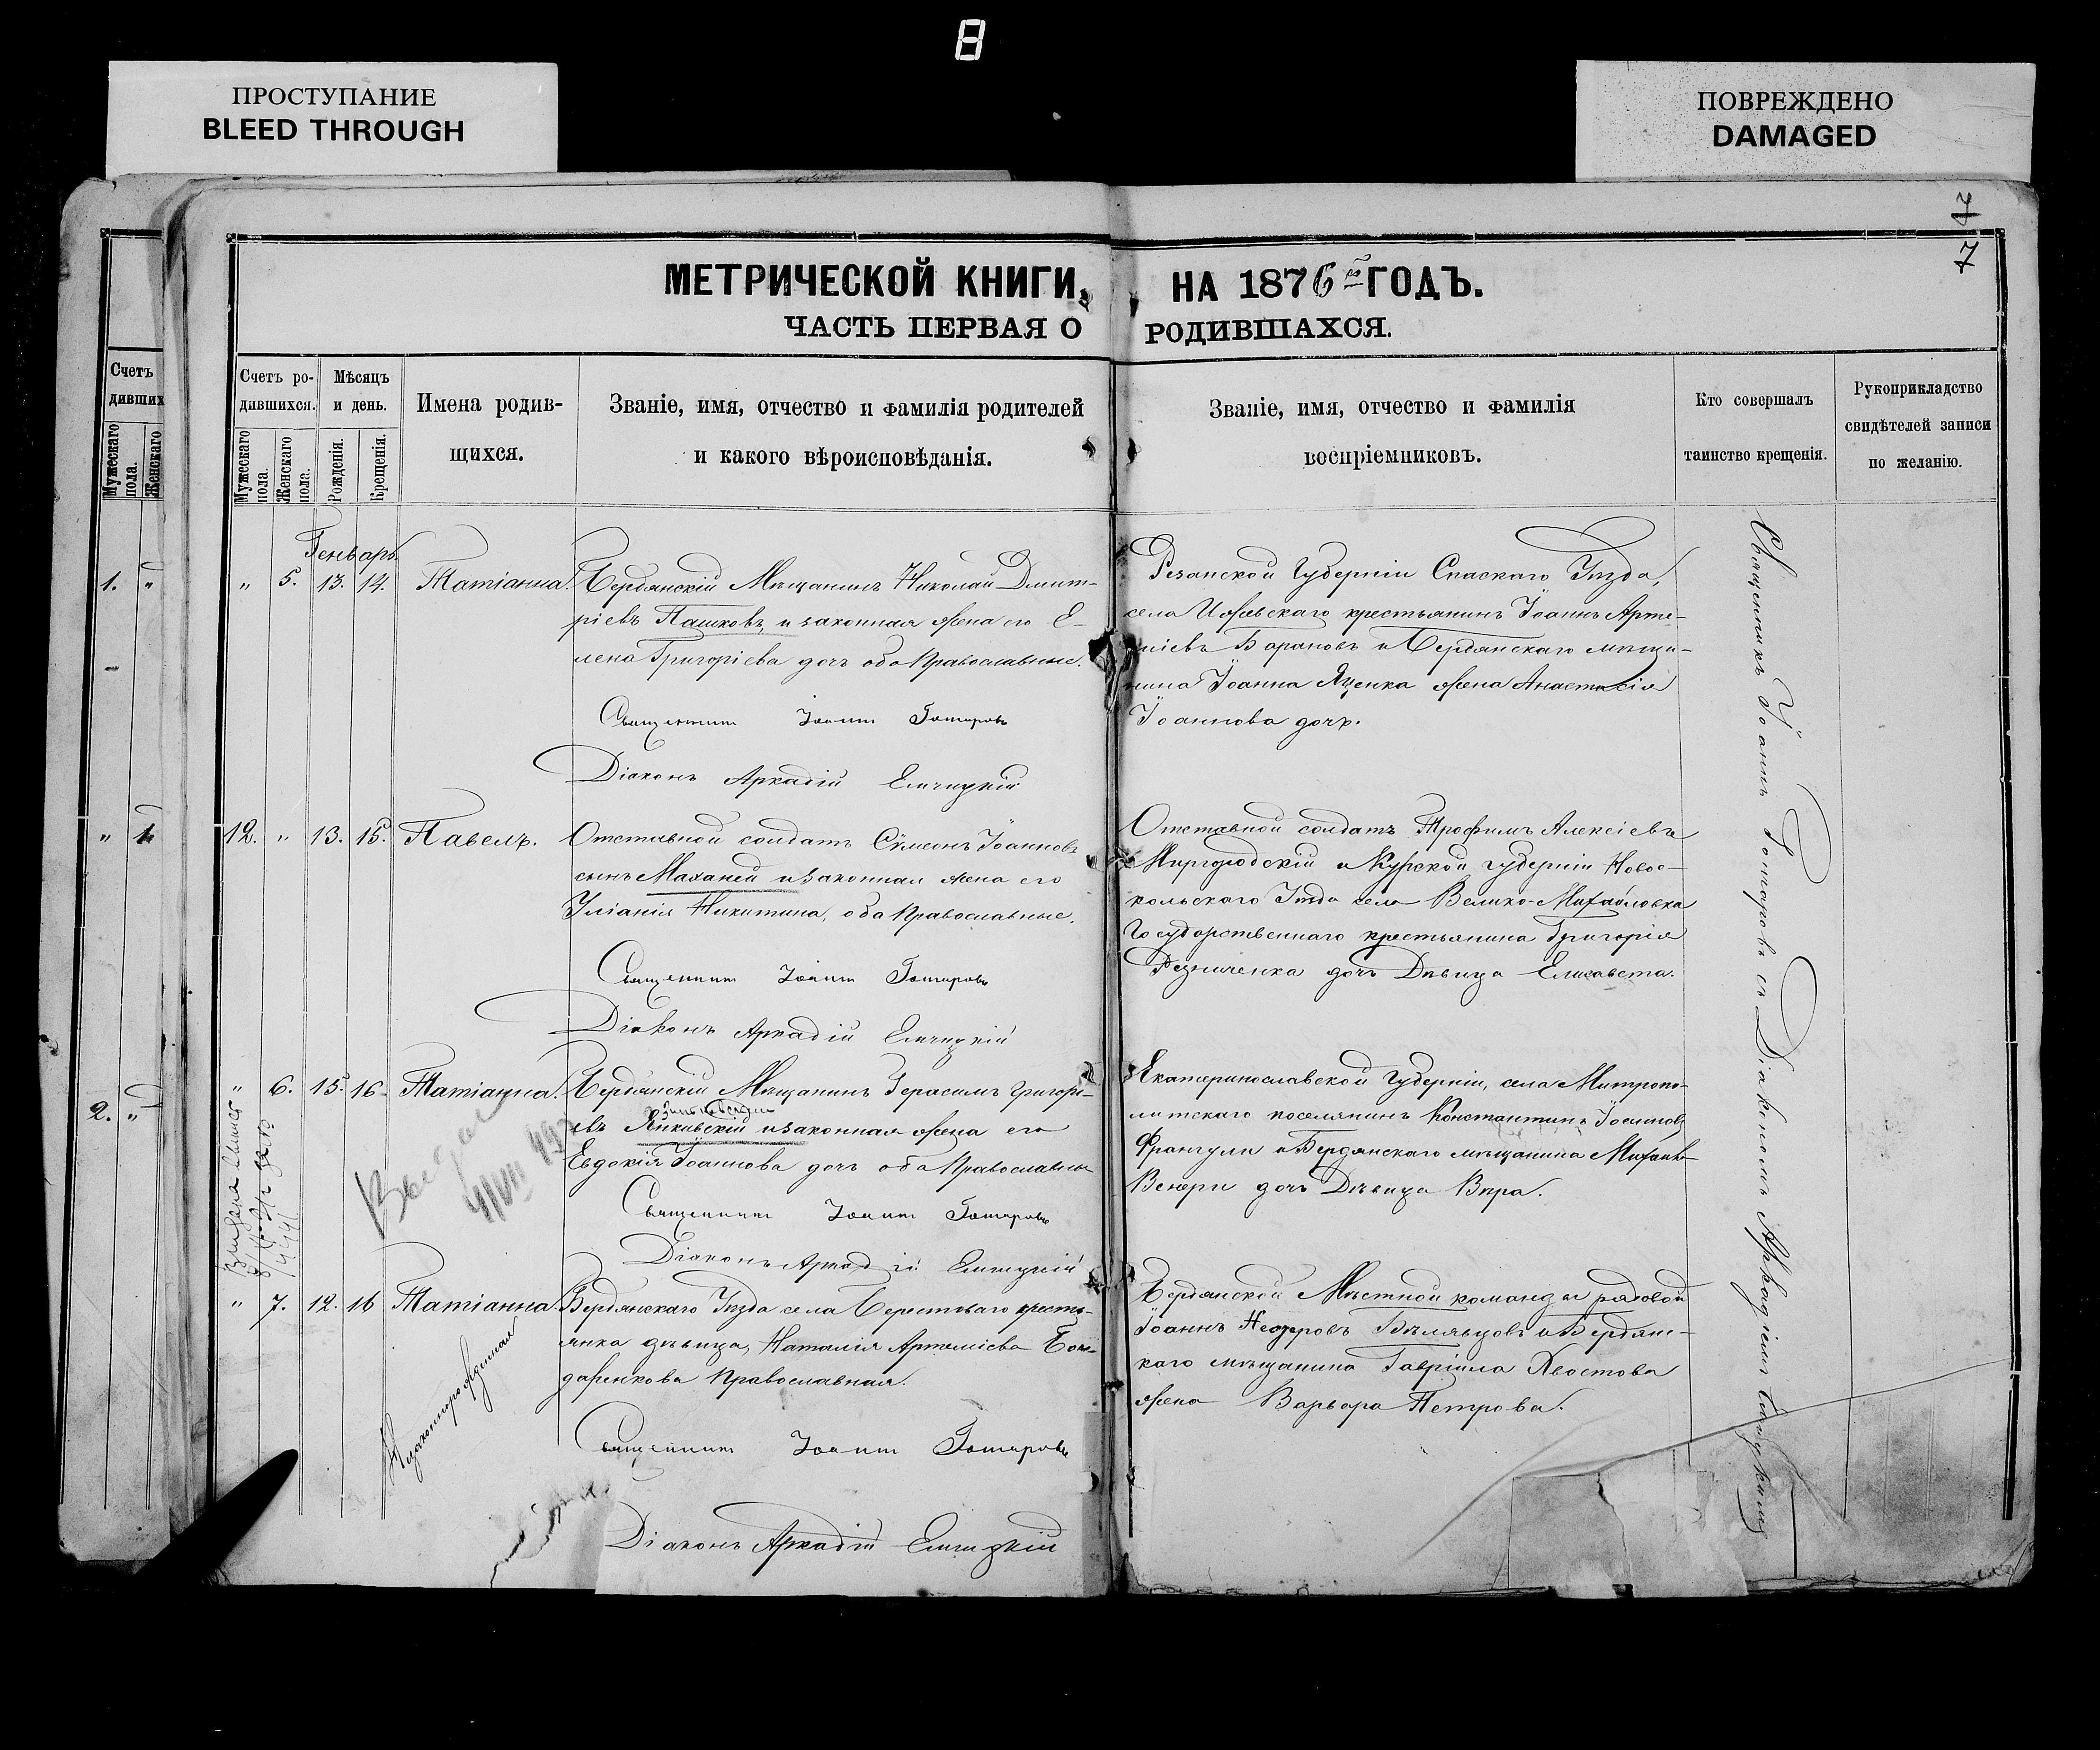 8
ПРОСТУПАНИЕ
BLEED THROUGH
ПОВРЕЖДЕНО
DAMAGED
7
7
МЕТРИЧЕСКОЙ КНИГИ, НА 1876й ГОДЪ.
ЧАСТЬ ПЕРВАЯ О РОДИВШАХСЯ.
Счетъ
дивших
Мужескаго
пола.
Женскаго
1. "
" 1.
2. "
Счетъ ро-
дившихся.
Мужескаго
пола.
Женскаго
пола.
Мѣсяцъ
и день.
Рожденія.
Крещенія.
Имена родив-
щихся.
Званіе, имя, отчество и фамилія родителей
и какого вѣроисповѣданія.
Званіе, имя, отчество и фамилія
воспріемниковъ.
Кто совершалъ
таинство крещенія.
Рукоприкладство
свидѣтелей записи
по желанію.
Генварь.
" 5. 13. 14. Татіанна.
Бердянскій Мѣщанинъ Николай Дмит-
ріевъ Пашковъ, и законная жена его Е-
лена Григоріева дочь оба Православные.
Священникъ Іоаннъ Гонтаровъ
Діаконъ Аркадій
Резанской Губерніи Спаскаго Уѣзда,
села Ижевскаго крестьянинъ Іоаннъ Арте-
міевъ Барановъ и Бердянскаго мѣща-
нина Іоанна Яценка жена Анастасія
Іоаннова дочь.
12. " 13. 15. Павелъ.
Отставной солдатъ Сѵмеонъ Іоанновъ
сынъ Маханей и законная жена его
Уліанія Никитина, оба Православные.
Священникъ Іоаннъ Гонтаровъ
Діаконъ Аркадій
Отставной солдатъ Трофимъ Алексіевъ
Миргородскій и Курской губерніи Новос-
кольскаго Уѣзда села Велико-Михайловка
Государственнаго крестьянина Григорія
Резниченка дочь Дѣвица Елисавета.
" 6. 15. 16. Татіанна.
Бердянскій Мѣщанинъ Герасимъ Григорі-
евъ Янкивскій и законная жена его
Евдокія Іоаннова дочь оба Православны
Священникъ Іоаннъ Гонтаровъ
Діаконъ Аркадій
Екатеринославской Губерніи, села Митропо-
литскаго поселянинъ Константинъ
Франгули и Бердянскаго мѣщанина Михаила
Венери дочь Дѣвица Вѣра.
" 7. 12. 16 Татіанна.
Незаконнорожденная
Бердянскаго Уѣзда села Берестоваго кресть-
янка дѣвица, Наталія Артеміева Бон-
даренкова Православная.
Священникъ Іоаннъ Гонтаровъ
Діаконъ Аркадій
Бердянской Мѣстной команды рядовой
Іоаннъ Бѣлявцовъ и Бердянс-
каго мѣщанина Гавріила Хвостова
жена Варвара Петрова.
Священникъ Іоаннъ Гонтаровъ съ Діакономъ Аркадіемъ